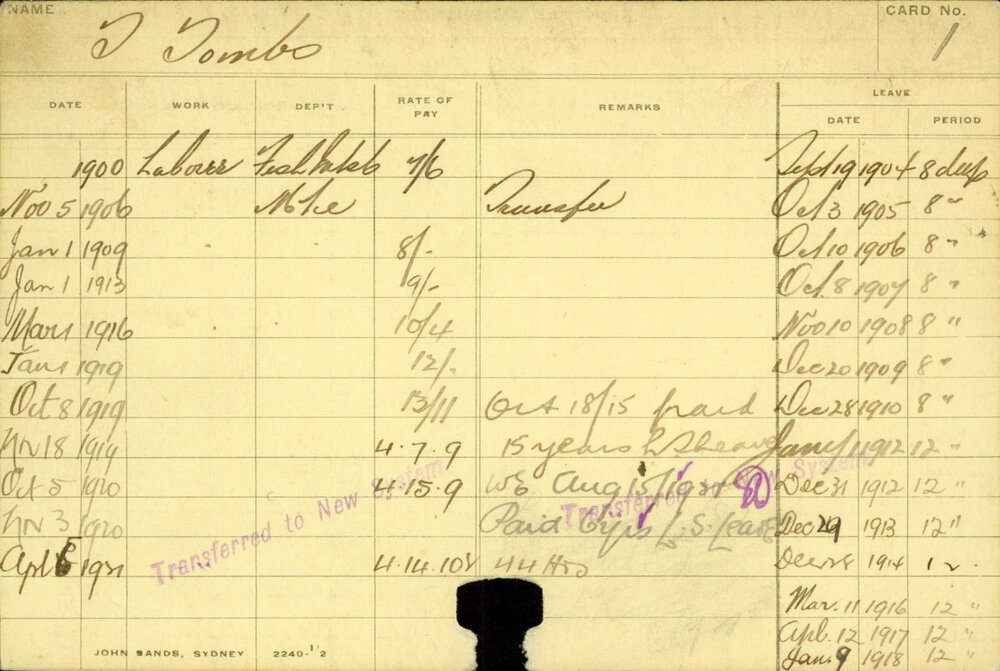 NAME
T Tombs
CARD No.
1
DATE WORK DEP'T RATE OF PAY REMARKS LEAVE
DATE PERIOD
1900 Labourer Fish Mkts 7/6 Sept 19 1904 8 days
Nov 5 1906 Transfer Oct 3 1905 8 "
Jan 1 1909 8/- Oct 10 1906 8 "
Jan 1 1913 9/- Oct 8 1907 8 "
Mar 1 1916 10/4 Nov 10 1908 8 "
Jan 1 1919 12/- Dec 20 1909 8 "
Oct 8 1919 13/11 Oct 18/15 paid Dec 28 1910 8 "
Nov 18 1919 4.7.9 15 years L S leave Jany 1 1912 12 "
Oct 5 1920 4.15.9 WE Aug 15/1921 Dec 31 1912 12 "
Nov 3 1920 Paid 6 yrs L.S. Leave Dec 29 1913 12 "
Apl 5 1921 4.14.10 44 Hrs Dec 28 1914 12 "
Mar. 11 1916 12 "
Apl. 12 1917 12 "
Jan. 9 1918 12 "
Transferred to New System
Transferred to New System
JOHN SANDS, SYDNEY 2240-1'2